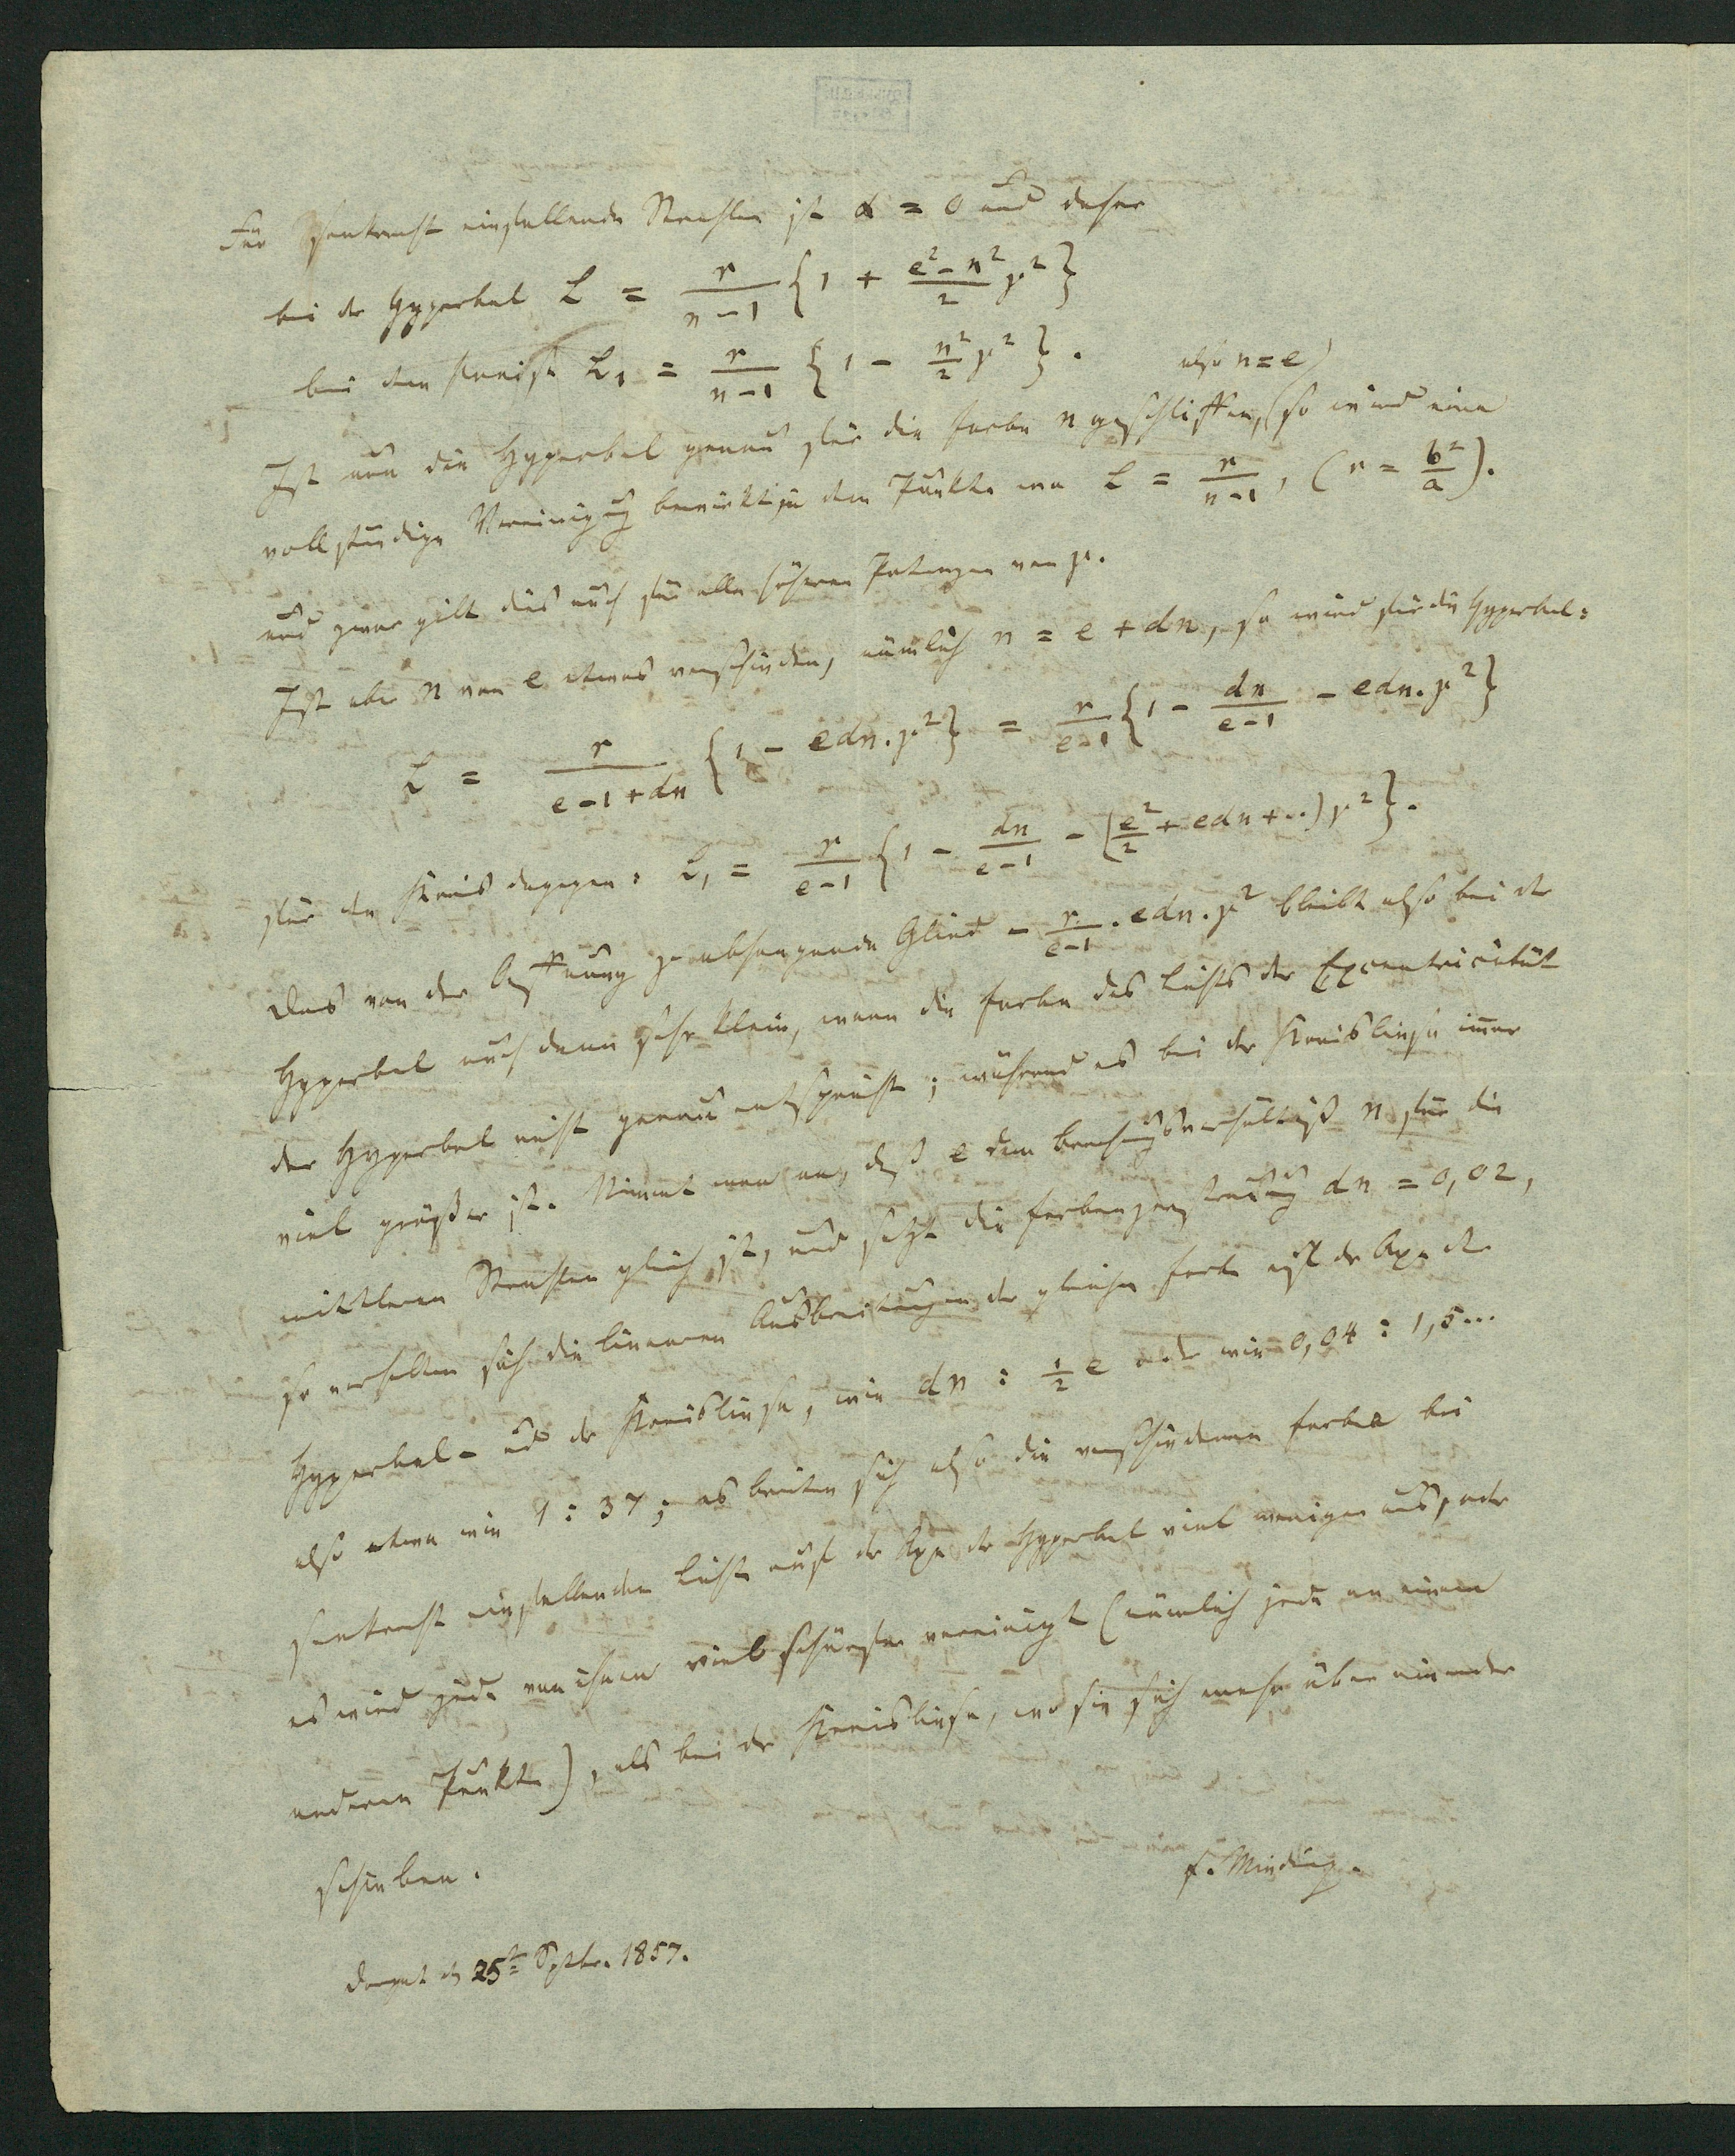 Für senkrecht einfallende Strahlen ist α = 0 und daher
bei der Hyperbel L = r/(n-1) {1 + (e²-n²)/2 μ²}
bei dem Kreise L₁ = r/(n-1) {1 - n²/2 μ²}.
also n=e)
Ist nun die Hyperbel genau für die Farbe n geschliffen, (so wird eine
vollständige Vereinigung bewirkt in dem Punkte wo L = r/(n-1), (r = b²/a).
und zwar gilt dies auch für alle höheren Potenzen von μ.
Ist aber n von e etwas verschieden, nämlich n = e + dn, so wird für die Hyperbel:
L = r/(e-1+dn) {1 - edn.μ²} = r/(e-1) {1 - dn/(e-1) - edn.μ²}
für den Kreis dagegen: L₁ = r/(e-1) {1 - dn/(e-1) - (e²/2 + edn+..)μ²}.
Das von der Öffnung abhängende Glied - r/(e-1) . edn.μ² bleibt also bei der
Hyperbel auch dann sehr klein, wenn die Farbe des Lichts der Excentricität
der Hyperbel nicht genau entspricht; während es bei der Kreislinse immer
viel größer ist. Nimmt man an, daß e dem Brechungsverhältniß n für die
mittleren Strahlen gleich ist, und setzt die Farbenzerstreuung dn = 0,02,
so verhalten sich die linearen Ausbreitungen der gleichen Farbe auf der Axe der
Hyperbel- und der Kreislinse, wie dn : ½ e oder wie 0,04 : 1,5...
also etwa wie 1 : 37; es breiten sich also die verschiedenen Farben bei
senkrecht einfallendem Licht auf der Axe der Hyperbel viel weniger aus, oder
es wird jede von ihnen viel schärfer vereinigt (nämlich jede an einem
anderen Punkte), als bei der Kreislinse, wo sie sich mehr über einander
schieben.
F. Minding.
Dorpat d. 25ten Septbr. 1857.